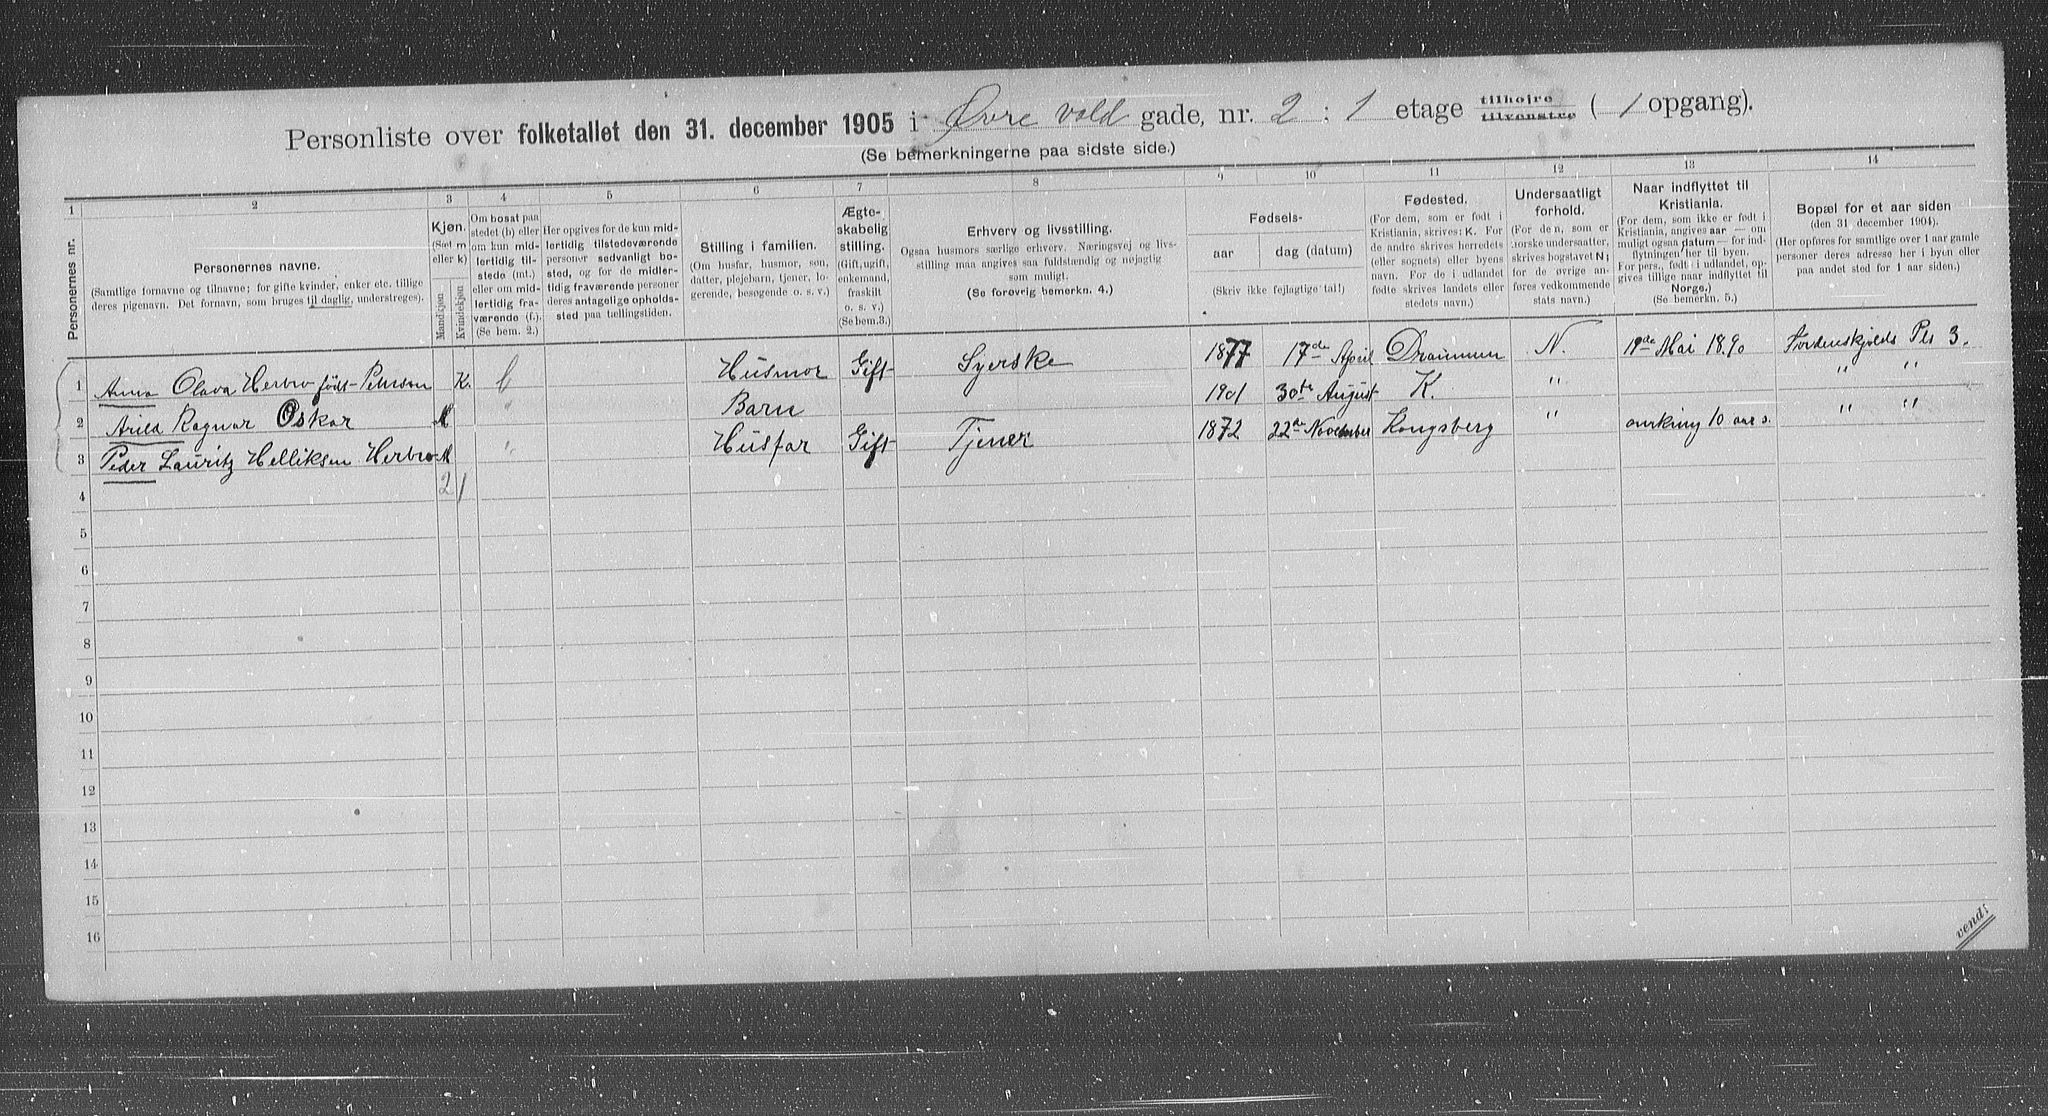 Personliste over folketallet den 31. december 1905 i Øvre vold gade, nr. 2 : 1 etage tilhøjre tilvenstre ( 1 opgang).
(Se bemerkningerne paa sidste side.)
1 2 3 4 5 6 7 8 9 10 11 12 13 14
Personernes nr.
Personernes navne.
(Samtlige fornavne og tilnavne; for gifte kvinder, enker etc. tillige
deres pigenavn. Det fornavn, som bruges til daglig, understreges).
Kjøn.
(Sæt m
eller k)
Mandkjøn
Kvindekjøn
Om bosat paa
stedet (b) eller
om kun mid-
lertidig til-
stede (mt.)
eller om mid-
lertidig fra-
værende (f.).
(Se bem. 2.)
Her opgives for de kun mid-
lertidig tilstedeværende
personer sedvanligt bo-
sted, og for de midler-
tidig fraværende personer
deres antagelige opholds-
sted paa tællingstiden.
Stilling i familien.
(Om husfar, husmor, søn,
datter, plejebarn, tjener, lo-
gerende, besøgende o. s. v.)
Ægte-
skabelig
stilling.
(Gift, ugift,
enkemand,
fraskilt
o. s. v.)
(Se bem. 3.)
Erhverv og livsstilling.
Ogsaa husmors særlige erhverv. Næringsvej og livs-
stilling maa angives saa fuldstændig og nøjagtig
som muligt.
(Se forøvrig bemerkn. 4.)
Fødsels-
aar
dag (datum)
(Skriv ikke fejlagtige tal!)
Fødested.
(For dem, som er født i
Kristiania, skrives: K. For
de andre skrives herredets
(eller sognets) eller byens
navn. For de i udlandet
fødte skrives landets eller
stedets navn.)
Undersaatligt
forhold.
(For den, som er
norske undersaatter,
skrives bogstavet N;
for de øvrige an-
føres vedkommende
stats navn.)
Naar indflyttet til
Kristiania.
(For dem, som ikke er født i
Kristiania, angives aar — om
muligt ogsaa datum — for ind-
flytningen her til byen.
For pers., født i udlandet, op-
gives tillige naar indflyttet til
Norge.)
(Se bemerkn. 5.)
Bopæl for et aar siden
(den 31. december 1904).
(Her opføres for samtlige over 1 aar gamle
personer deres adresse her i byen eller
paa andet sted for 1 aar siden.)
1 Anna Olava Herbro født Petersen K. b Husmor Gift Syerske 1877 17de April Drammen N. 19de Mai 1890 Tordenskjolds Pls 3.
2 Arild Ragnar Oskar M " Barn 1901 30te August K. " " "
3 Peder Lauritz Helliksen Herbro M " Husfar Gift Tjener 1872 22de November Kongsberg " omkring 10 aar s. " "
4 2 1
5
6
7
8
9
10
11
12
13
14
15
16
vend!